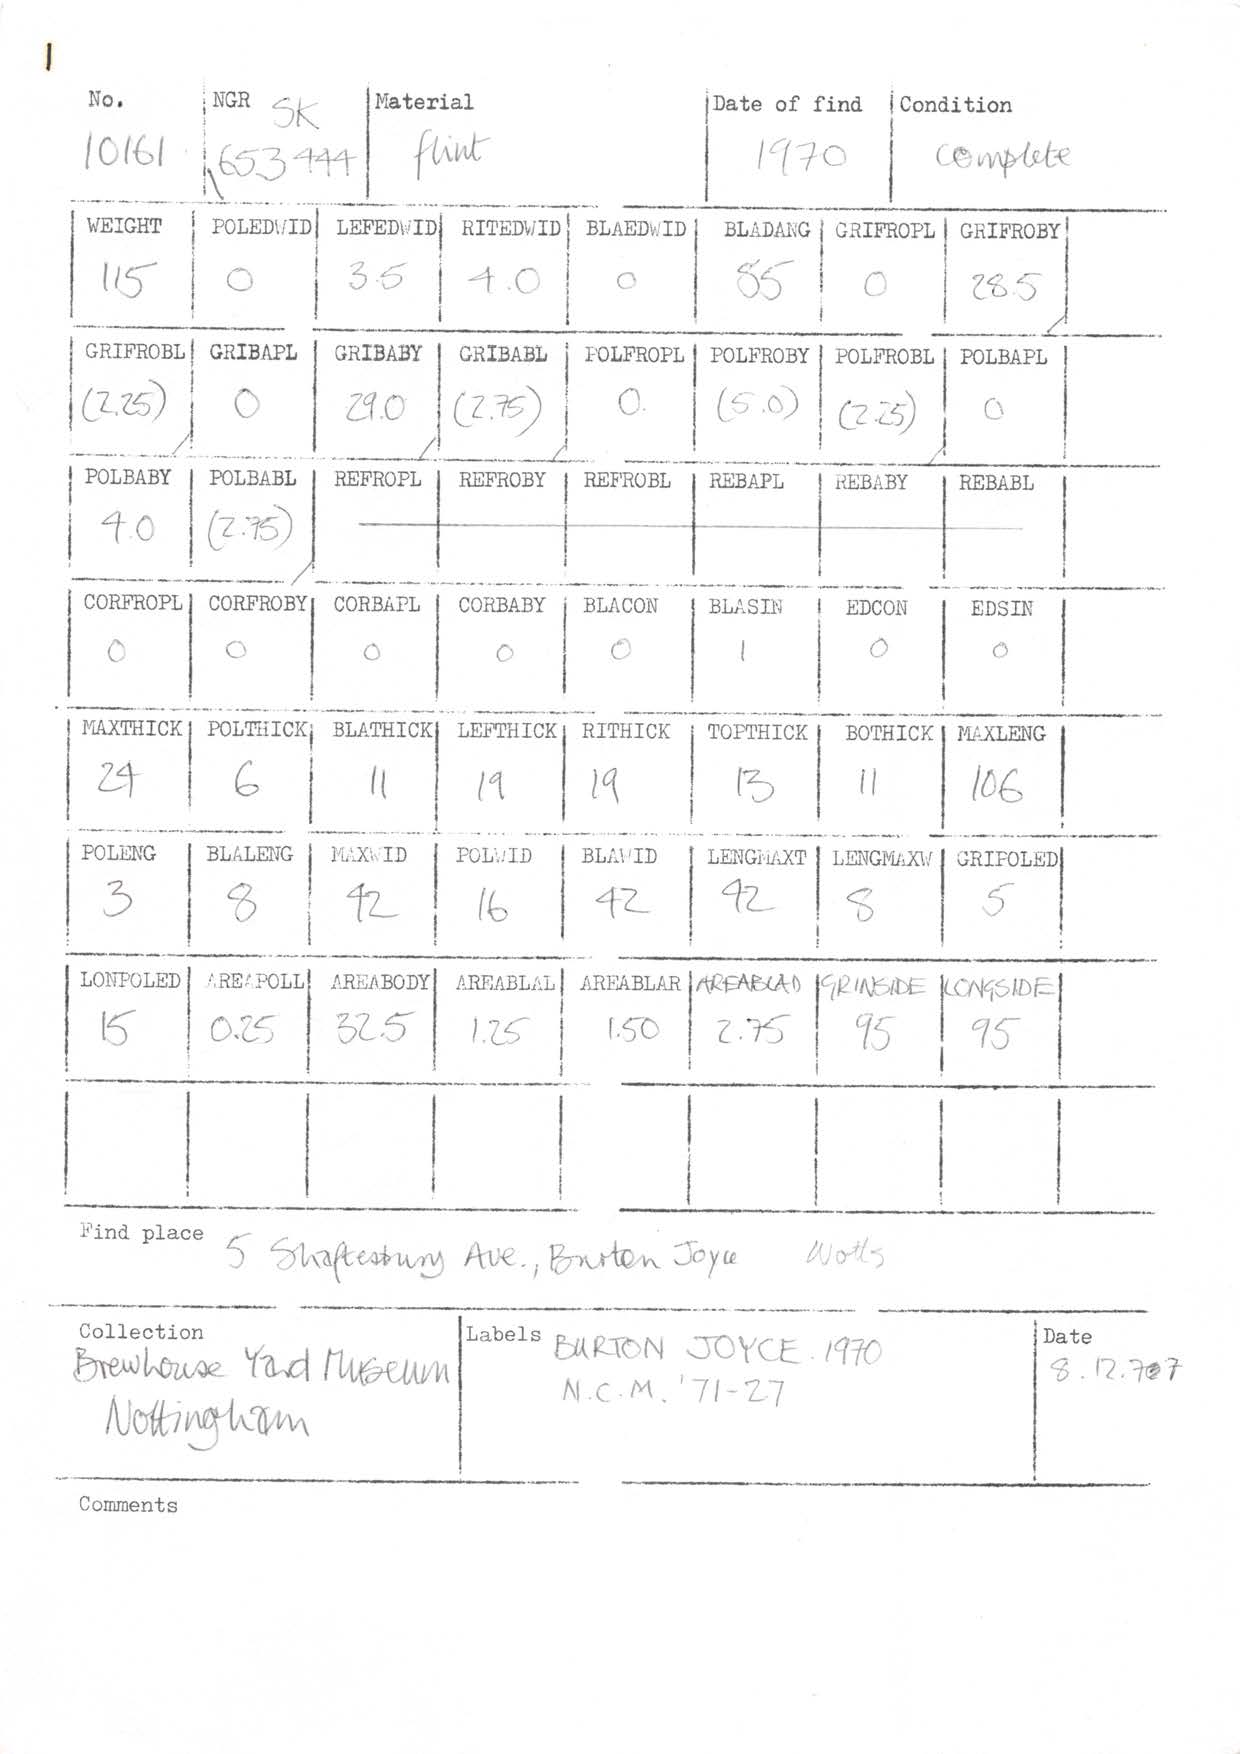 1
No. NGR SK Material Date of find Condition
10161 653444 flint 1970 complete
WEIGHT POLEDWID LEFEDWID RITEDWID BLAEDWID BLADANG GRIFROPL GRIFROBY
115 0 3.5 4.0 0 85 0 28.5
GRIFROBL GRIBAPL GRIBABY GRIBABL POLFROPL POLFROBY POLFROBL POLBAPL
(2.25) 0 29.0 (2.75) 0. (5.0) (2.25) 0
POLBABY POLBABL REFROPL REFROBY REFROBL REBAPL REBABY REBABL
4.0 (2.75)
CORFROPL CORFROBY CORBAPL CORBABY BLACON BLASIN EDCON EDSIN
0 0 0 0 0 1 0 0
MAXTHICK POLTHICK BLATHICK LEFTHICK RITHICK TOPTHICK BOTHICK MAXLENG
24 6 11 19 19 13 11 106
POLENG BLALENG MAXWID POLWID BLAWID LENGMAXT LENGMAXW GRIPOLED
3 8 42 16 42 42 8 5
LONPOLED AREAPOLL AREABODY AREABLAL AREABLAR AREABLAD GRINSIDE LONGSIDE
15 0.25 32.5 1.25 1.50 2.75 95 95
Find place 5 Shaftesbury Ave., Burton Joyce Notts
Collection Labels BURTON JOYCE. 1970 Date
Brewhouse Yard Museum N.C.M. '71-27 8.12.77
Nottingham
Comments